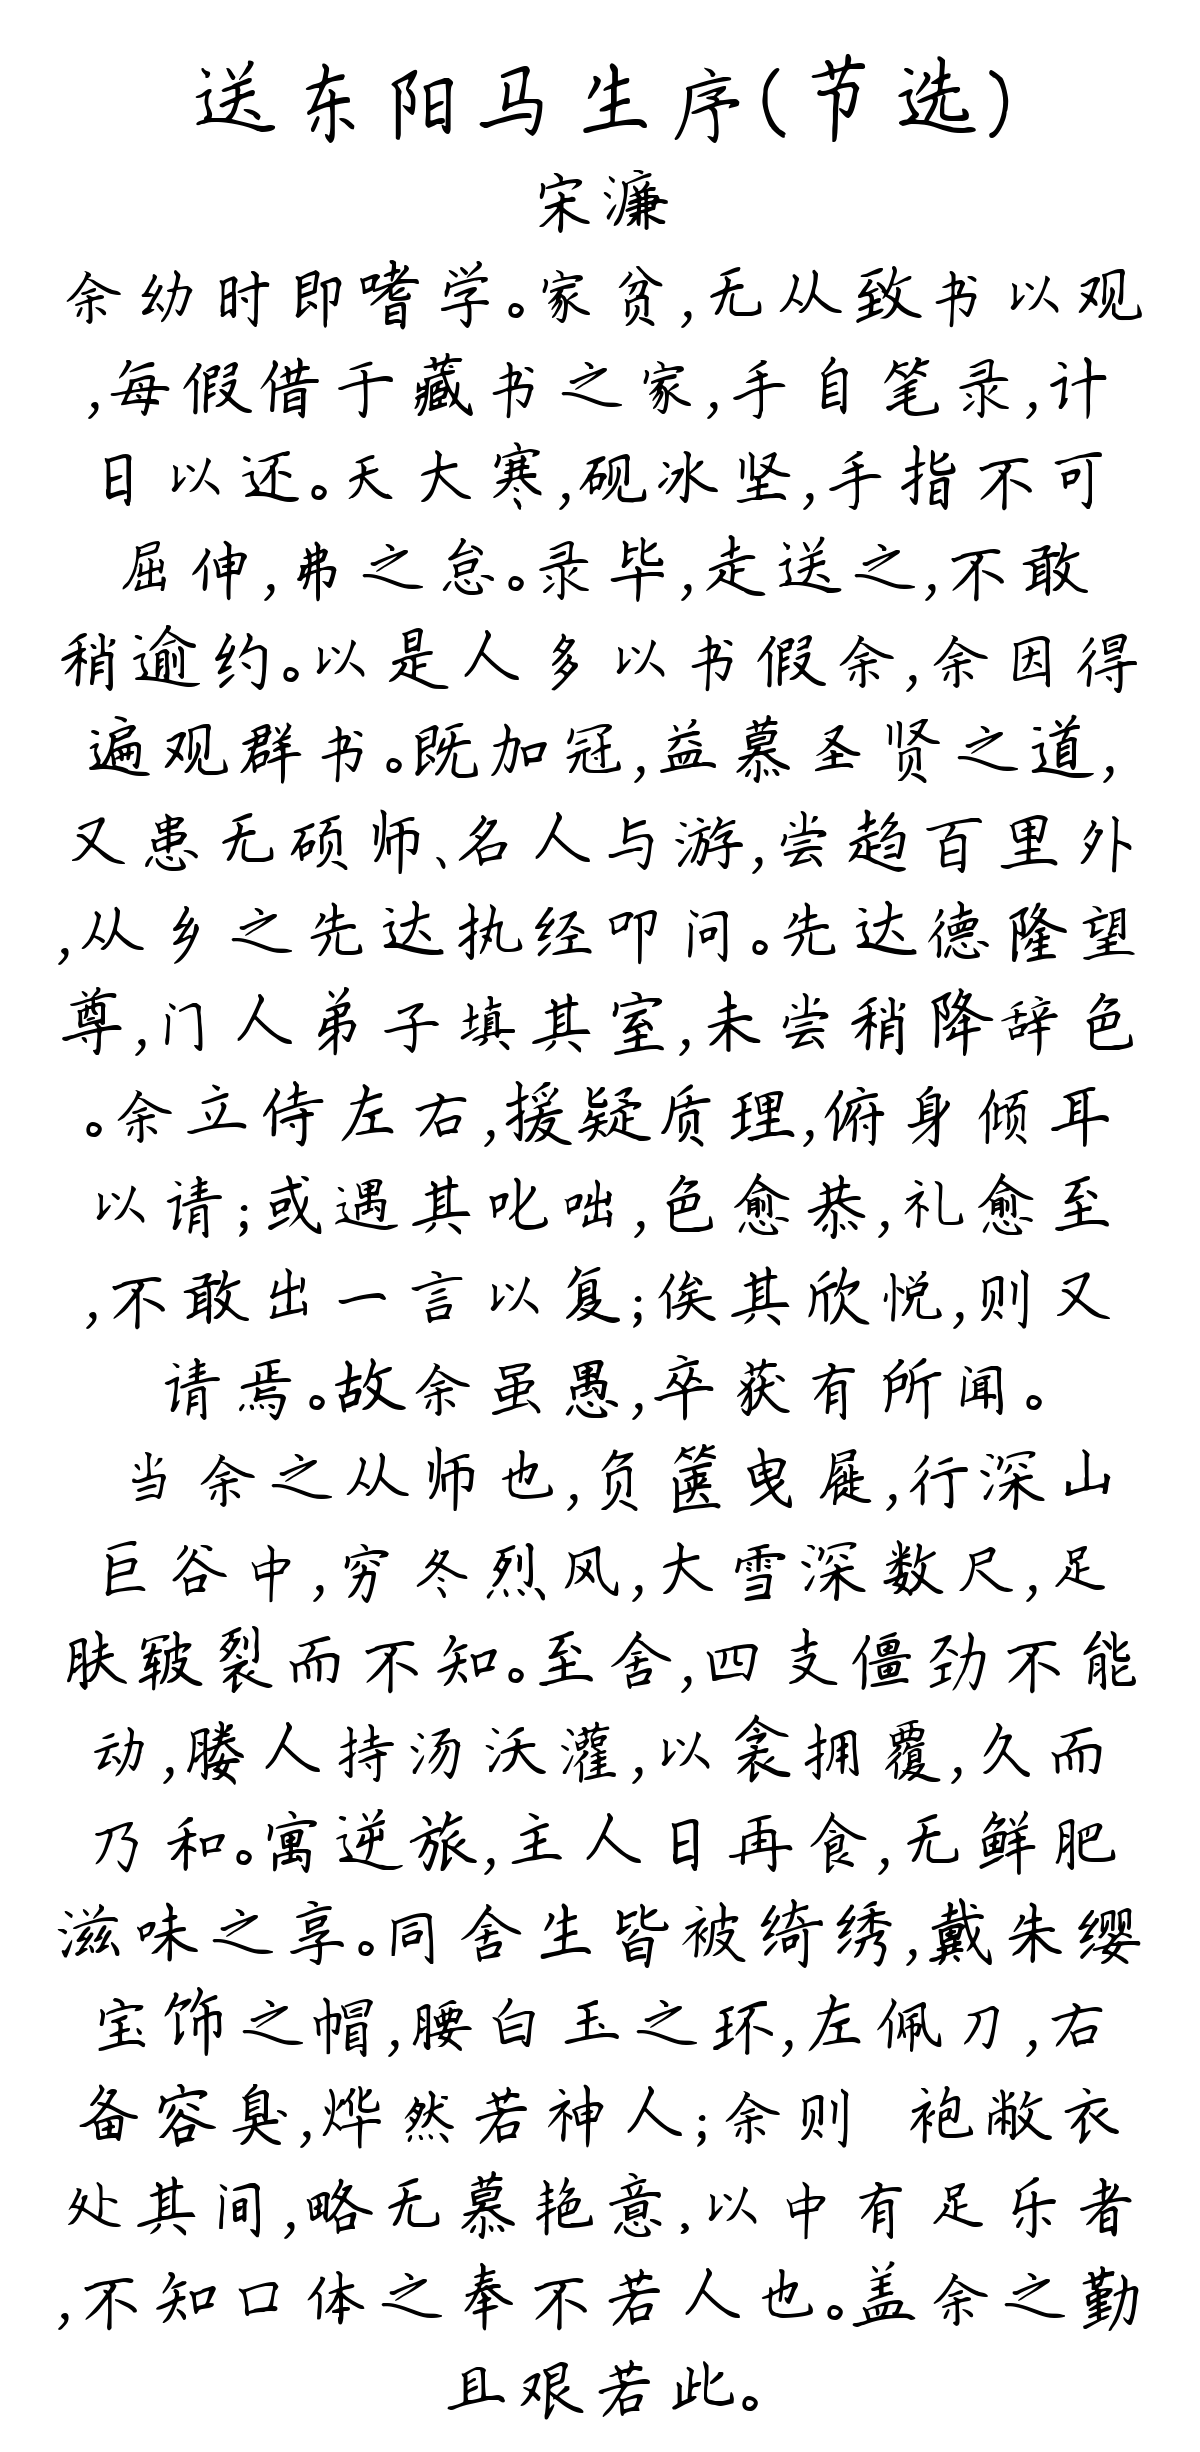 送东阳马生序(节选)
宋濂
余幼时即嗜学。家贫,无从致书以观
,每假借于藏书之家,手自笔录,计
日以还。天大寒,砚冰坚,手指不可
屈伸,弗之怠。录毕,走送之,不敢
稍逾约。以是人多以书假余,余因得
遍观群书。既加冠,益慕圣贤之道,
又患无硕师、名人与游,尝趋百里外
,从乡之先达执经叩问。先达德隆望
尊,门人弟子填其室,未尝稍降辞色
。余立侍左右,援疑质理,俯身倾耳
以请;或遇其叱咄,色愈恭,礼愈至
,不敢出一言以复;俟其欣悦,则又
请焉。故余虽愚,卒获有所闻。
当余之从师也,负箧曳屣,行深山
巨谷中,穷冬烈风,大雪深数尺,足
肤皲裂而不知。至舍,四支僵劲不能
动,媵人持汤沃灌,以衾拥覆,久而
乃和。寓逆旅,主人日再食,无鲜肥
滋味之享。同舍生皆被绮绣,戴朱缨
宝饰之帽,腰白玉之环,左佩刀,右
备容臭,烨然若神人;余则 袍敝衣
处其间,略无慕艳意,以中有足乐者
,不知口体之奉不若人也。盖余之勤
且艰若此。